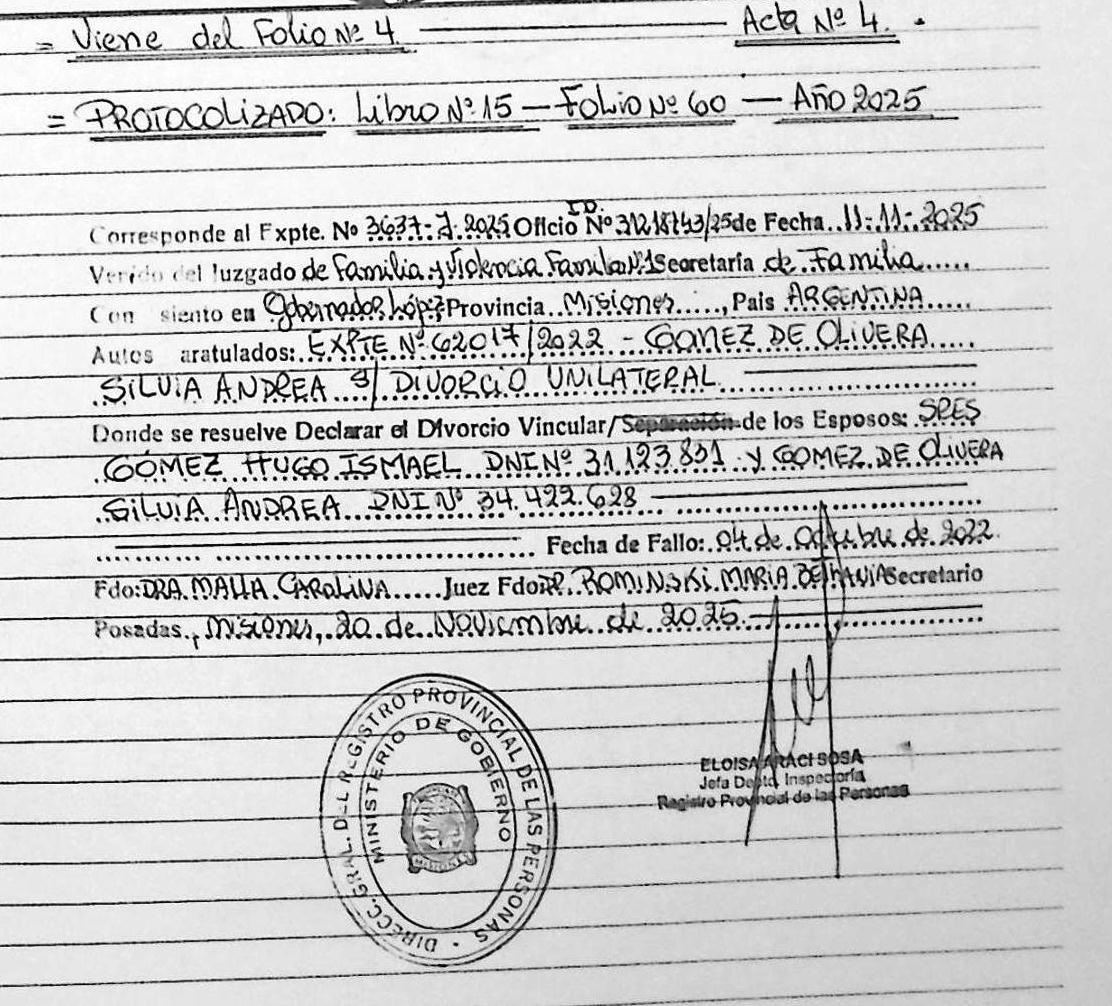 = Viene del Folio Nº 4 Acta Nº 4.
= PROTOCOLIZADO: Libro Nº 15 — Folio Nº 60 — Año 2025
Corresponde al Expte. No 3637-J-2025 Oficio ID. Nº 31218743/25 de Fecha 11-11-2025
Venido del Juzgado de Familia y Violencia Familiar Nº1 Secretaría de Familia
Con siento en Gobernador López Provincia Misiones, Pais ARGENTINA
Autos aratulados: EXPTE Nº 62017/2022 - GOMEZ DE OLIVERA
SILVIA ANDREA S/ DIVORCIO UNILATERAL
Donde se resuelve Declarar el Divorcio Vincular/Separación de los Esposos: SRES
GÓMEZ HUGO ISMAEL DNI Nº 31.123.831 Y GOMEZ DE OLIVERA
SILVIA ANDREA DNI Nº 34.422.628
Fecha de Fallo: 04 de Octubre de 2022.
Fdo: DRA. MALLA CAROLINA Juez Fdo DR. ROMINSKI MARIA BETHANIA Secretario
Posadas, Misiones, 20 de Noviembre de 2025
DIRECC. GRAL. DEL REGISTRO PROVINCIAL DE LAS PERSONAS
MINISTERIO DE GOBIERNO
MISIONES
ELOISA ARACI SOSA
Jefa Depto. Inspectoría
Registro Provincial de las Personas